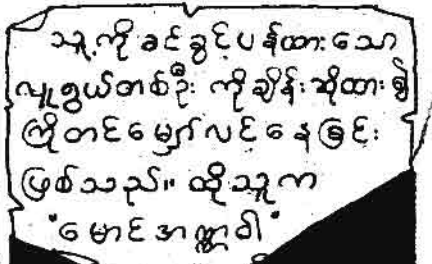 သူ့ကိုခင်ခွင့်ပန်ထားသော
လူရွယ်တစ်ဦး ကိုချိန်းဆိုထား၍
ကြိုတင်မျှော်လင်နေခြင်း
ဖြစ်သည်။ ထိုသူက
"မောင်အာဏ္ဏဝါ"